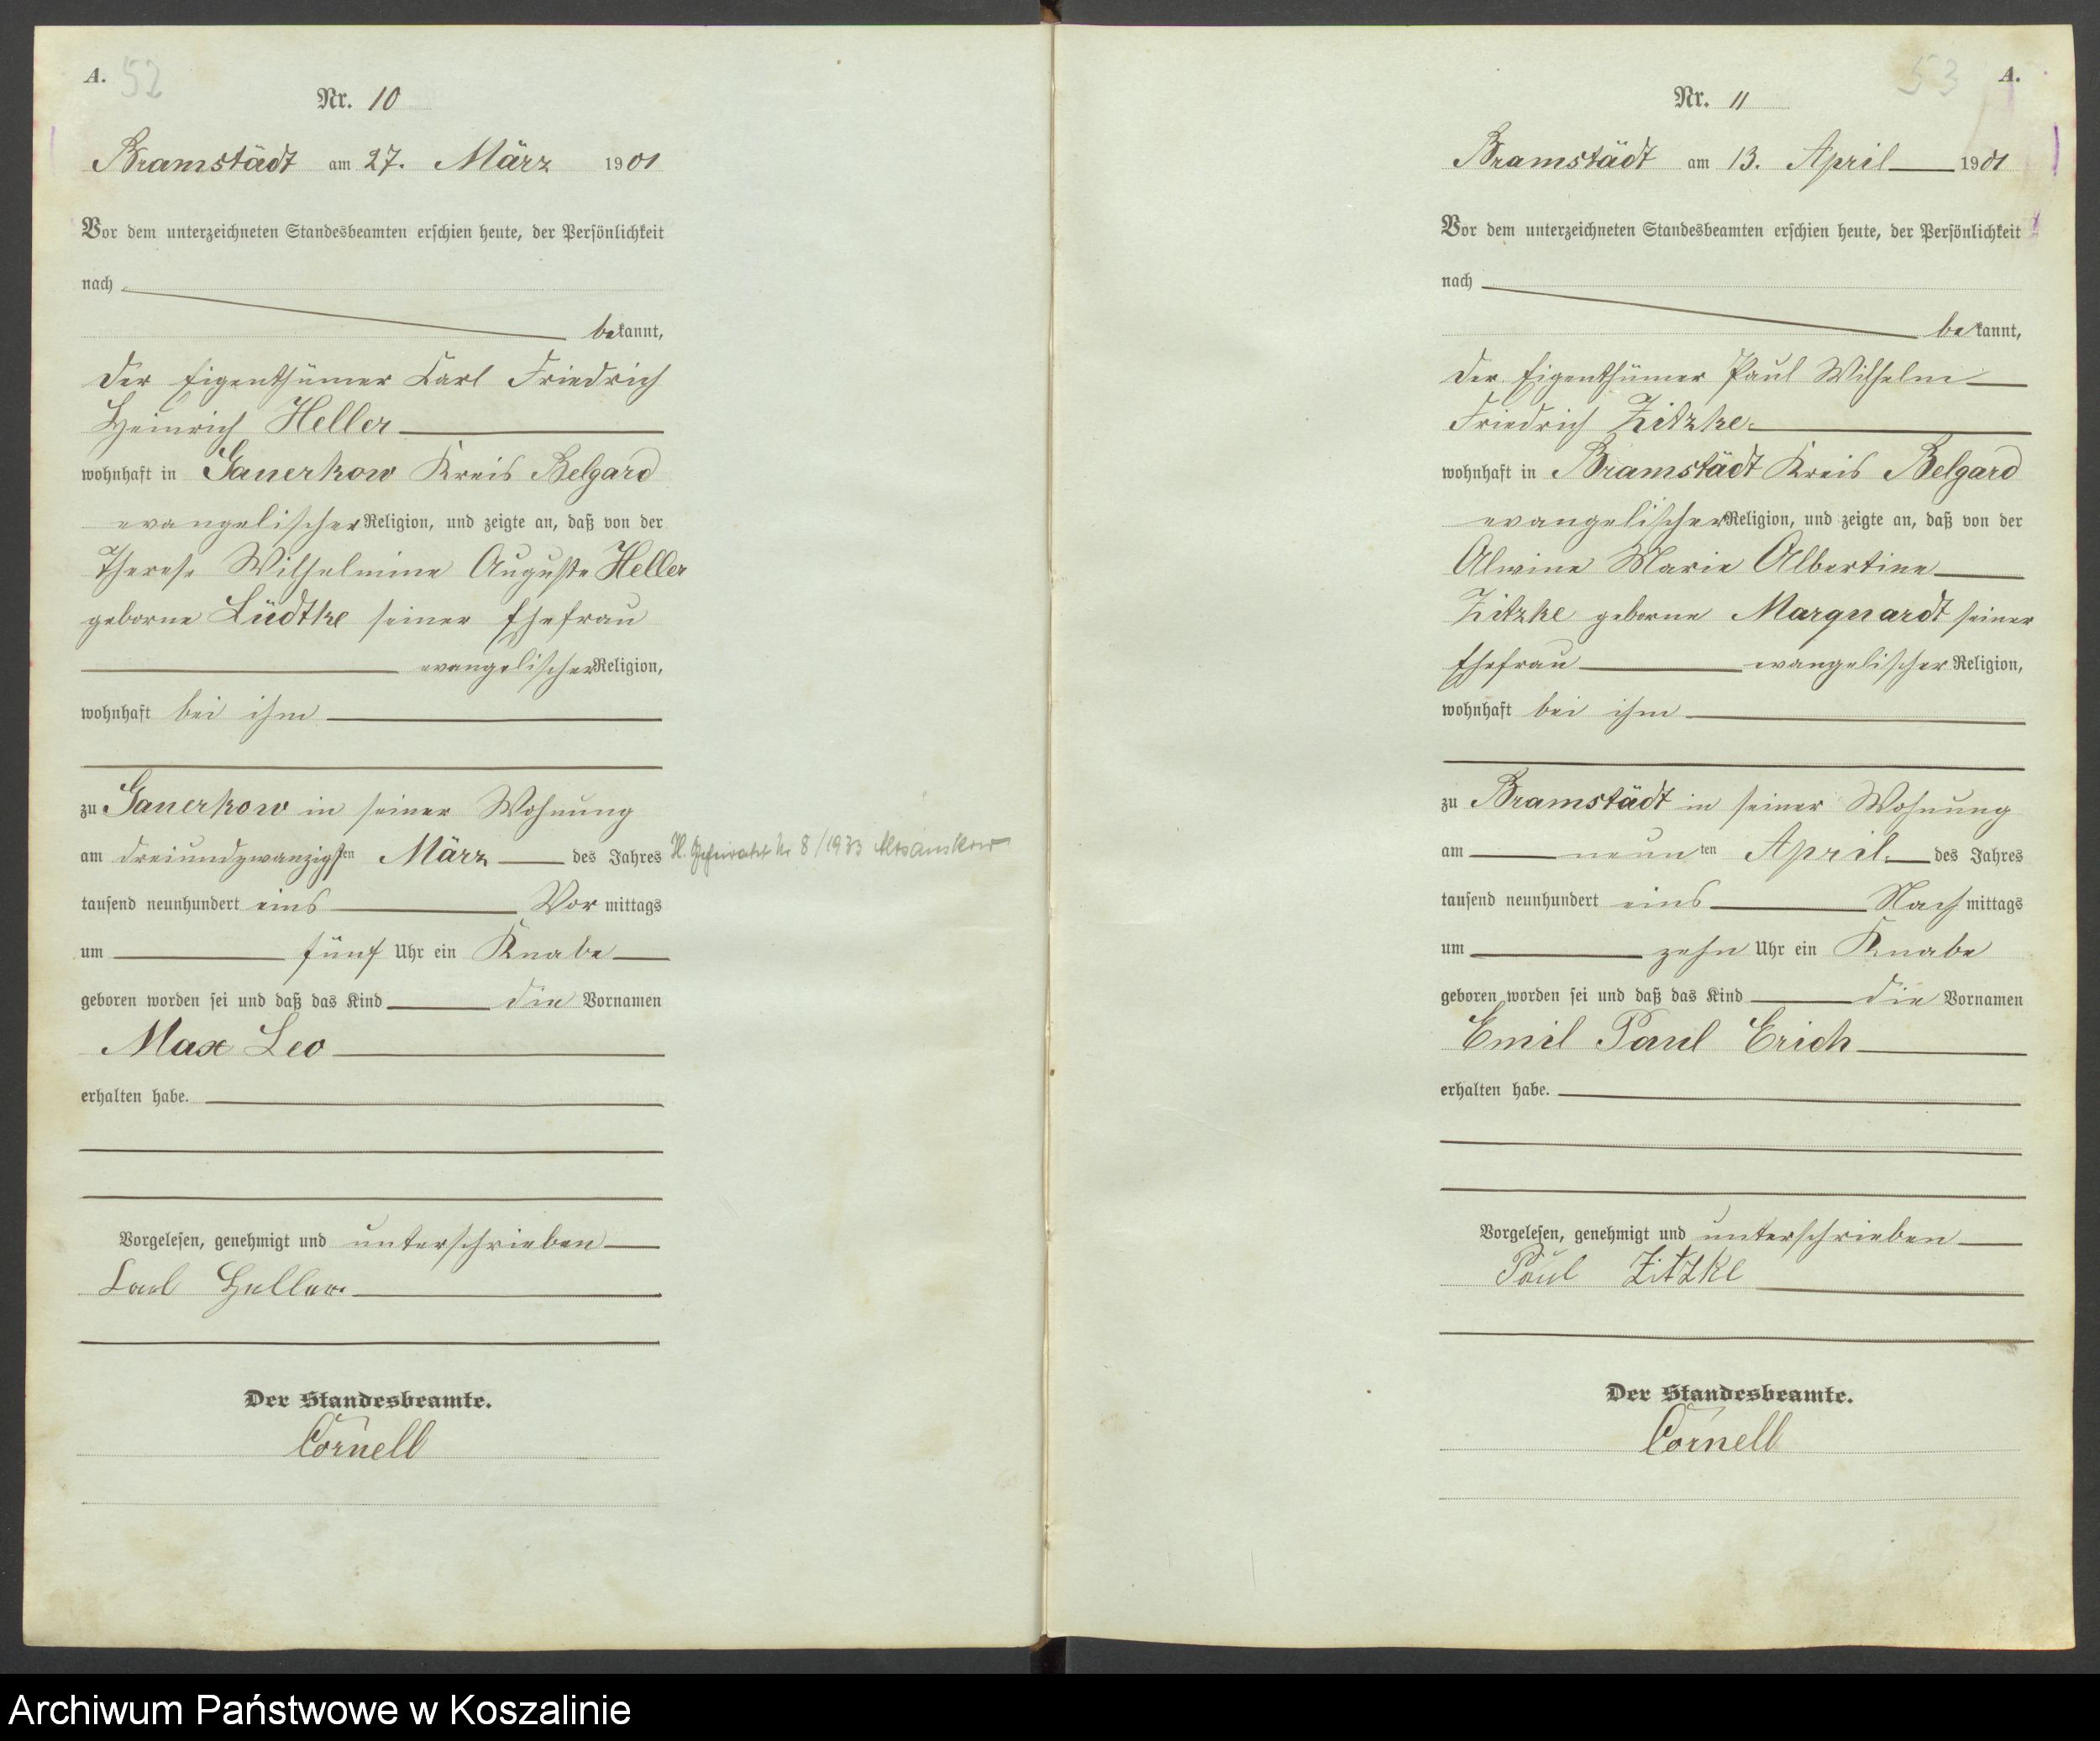 A. 52
Nr. 10
Bramstädt am 27. März 1901
Vor dem unterzeichneten Standesbeamten erschien heute, der Persönlichkeit
nach
bekannt,
der Eigenthümer Carl Friedrich
Heinrich Heller
wohnhaft in Ganerkow Kreis Belgard
evangelischer Religion, und zeigte an, daß von der
Therese Wilhelmine Auguste Heller
geborne Lüdtke seiner Ehefrau
evangelischer Religion,
wohnhaft bei ihm
zu Ganerkow in seiner Wohnung
am dreiundzwanzigsten März des Jahres
tausend neunhundert eins Vor mittags
um fünf Uhr ein Knabe
geboren worden sei und daß das Kind die Vornamen
Max Leo
erhalten habe.
Vorgelesen, genehmigt und unterschrieben
Carl Heller
Der Standesbeamte.
Cornell
H. Geheiratet Nr 8/1933
53 A.
Nr. 11
Bramstädt am 13. April 1901
Vor dem unterzeichneten Standesbeamten erschien heute, der Persönlichkeit
nach
bekannt,
der Eigenthümer Paul Wilhelm
Friedrich Zitzke
wohnhaft in Bramstädt Kreis Belgard
evangelischer Religion, und zeigte an, daß von der
Alwine Marie Albertine
Zitzke geborne Marquardt seiner
Ehefrau evangelischer Religion,
wohnhaft bei ihm
zu Bramstädt in seiner Wohnung
am neunten April des Jahres
tausend neunhundert eins Nach mittags
um zehn Uhr ein Knabe
geboren worden sei und daß das Kind die Vornamen
Emil Paul Erich
erhalten habe.
Vorgelesen, genehmigt und unterschrieben
Paul Zitzke
Der Standesbeamte.
Cornell
Archiwum Państwowe w Koszalinie